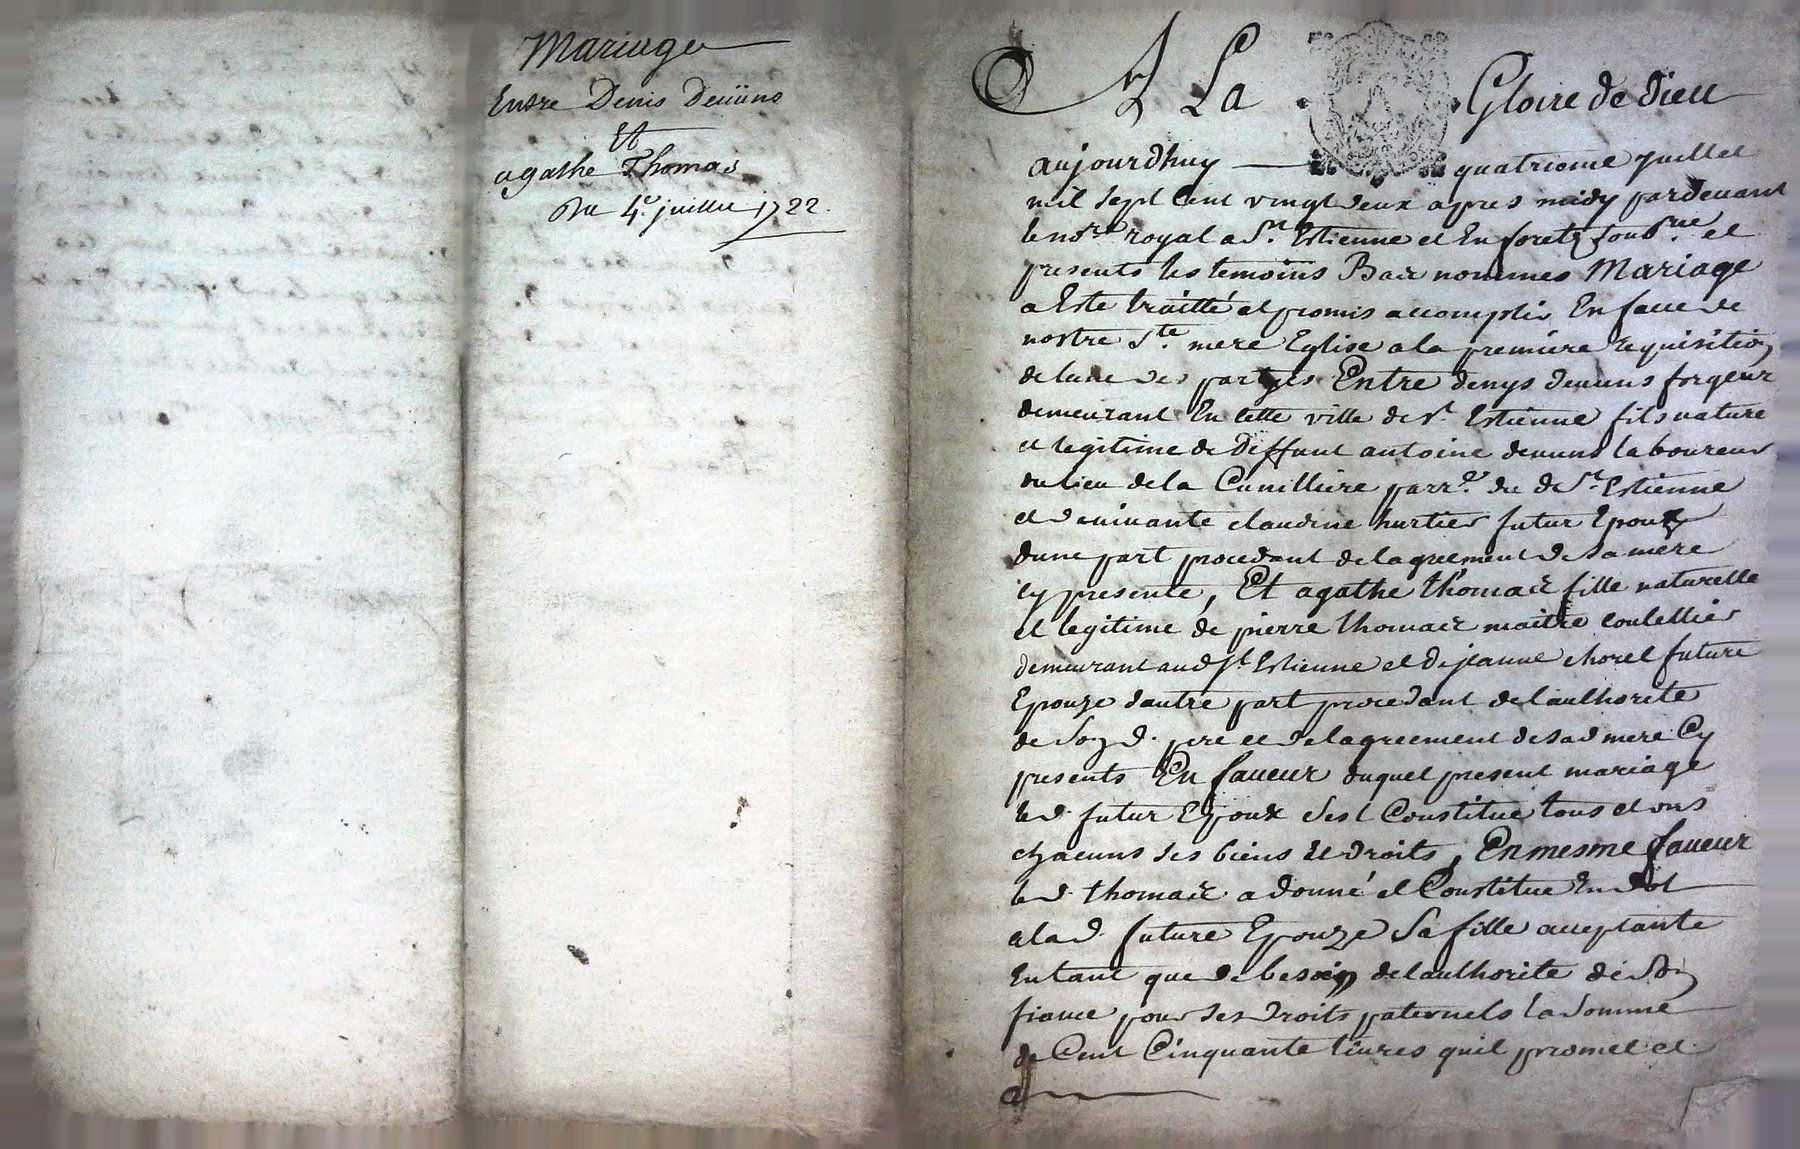 Mariage
Entre Denis Deuüns
Et
agathe Thomas
Du 4e. juillet 1722.
A La Gloire de Dieu
aujourdhuy quatrieme Juillet
mil sept Cent vingt deux apres midy pardevant
le nore royal a St. Estienne et En foretz soubne. et
presents les temoins Bas nommes Mariage
a Este traitté et promis accomplir En face de
nostre Ste. mere Eglise a la premiere requisition
de lune des partyes Entre denys deuuns forgeur
demeurant En cette ville de St. Estienne fils nature
et legitime de Deffunt antoine deuuns laboureur
du lieu de la Cunilliere parre. du d St. Estienne
et de vivante claudine hurtier futur Epoux
dune part procedant de lagreement de sa mere
icy presente, Et agathe thomas fille naturelle
et legitime de pierre thomas maitre coutellier
demeurant aud St. Estienne et de jeanne chorel future
Epouze dautre part procedant de lauthorité
de Son d. pere et de lagreement de sad mere Cy
presents En faveur duquel present mariage
le d. futur Epoux sest Constitue tous et uns
chacuns ses biens et droits, En mesme faveur
le d. thomas a donné et Constitue En dot
a la d. future Epouze Sa fille acceptante
En tant que de besoin de lauthorite de Son
fiance pour ses droits paternels la Somme
de Cent Cinquante livres quil promet et